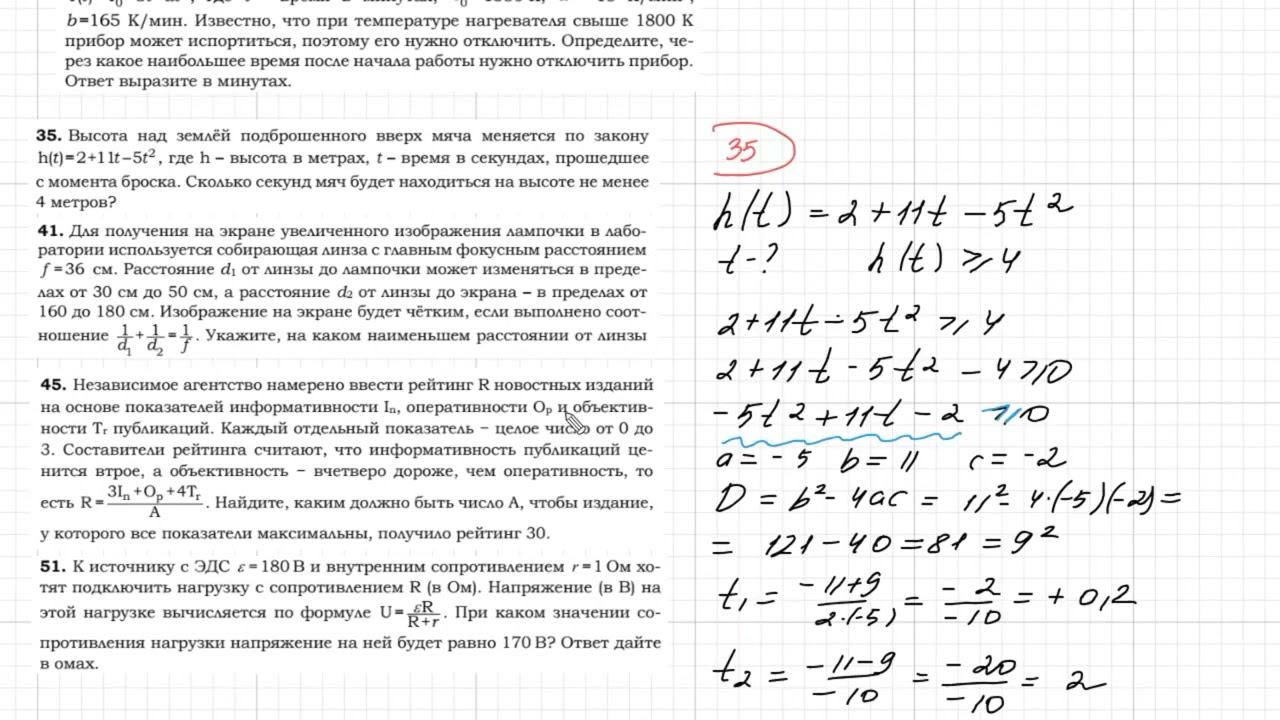 b=165 К/мин. Известно, что при температуре нагревателя свыше 1800 К
прибор может испортиться, поэтому его нужно отключить. Определите, че-
рез какое наибольшее время после начала работы нужно отключить прибор.
Ответ выразите в минутах.
35. Высота над землёй подброшенного вверх мяча меняется по закону
h(t)=2+11t−5t², где h – высота в метрах, t – время в секундах, прошедшее
с момента броска. Сколько секунд мяч будет находиться на высоте не менее
4 метров?
41. Для получения на экране увеличенного изображения лампочки в лабо-
ратории используется собирающая линза с главным фокусным расстоянием
f=36 см. Расстояние d₁ от линзы до лампочки может изменяться в преде-
лах от 30 см до 50 см, а расстояние d₂ от линзы до экрана – в пределах от
160 до 180 см. Изображение на экране будет чётким, если выполнено соот-
ношение 1/d₁+1/d₂=1/f. Укажите, на каком наименьшем расстоянии от линзы
45. Независимое агентство намерено ввести рейтинг R новостных изданий
на основе показателей информативности Iₙ, оперативности Oₚ и объектив-
ности Tᵣ публикаций. Каждый отдельный показатель – целое число от 0 до
3. Составители рейтинга считают, что информативность публикаций це-
нится втрое, а объективность – вчетверо дороже, чем оперативность, то
есть R=(3Iₙ+Oₚ+4Tᵣ)/A. Найдите, каким должно быть число А, чтобы издание,
у которого все показатели максимальны, получило рейтинг 30.
51. К источнику с ЭДС ε=180 В и внутренним сопротивлением r=1 Ом хо-
тят подключить нагрузку с сопротивлением R (в Ом). Напряжение (в В) на
этой нагрузке вычисляется по формуле U=εR/(R+r). При каком значении со-
противления нагрузки напряжение на ней будет равно 170 В? Ответ дайте
в омах.
35
h(t) = 2+11t −5t²
t-? h(t) ⩾ 4
2+11t−5t² ⩾ 4
2+11t−5t² −4 ⩾ 0
−5t²+11t−2 ⩾ 0
a=−5 b=11 c=−2
D = b²−4ac = 11²−4·(−5)(−2)=
= 121−40=81=9²
t₁ = (−11+9)/(2·(−5)) = −2/−10 = +0,2
t₂ = (−11−9)/−10 = −20/−10 = 2